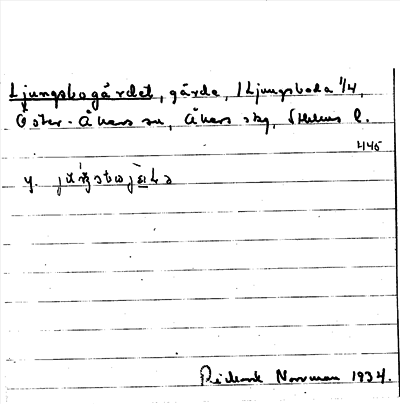 Ljungsbogärdet, gärde, i Ljungsboda 1/4,
Öster-Åkers sn, Åkers skg, Sthlms l.
445
y.
Rickard Norrman 1934.